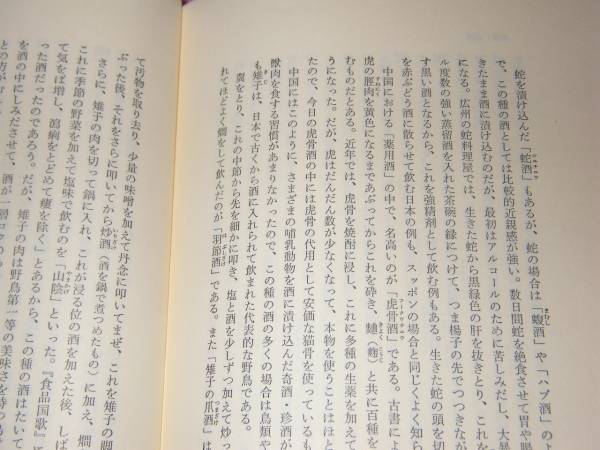 蛇を漬け込んだ「蛇酒」もあるが、蛇の場合は「蝮酒」や「ハブ酒」のよ
で、この種の酒としては比較的近親感が強い。数日間蛇を絶食させて胃や腸
きたまま酒に漬け込むのだが、最初はアルコールのために苦しみだし、大暴
になる。広州の蛇料理屋では、生きた蛇から黒緑色の肝を抜きとり、これを
ル度数の強い蒸留酒を入れた茶碗の縁につけて、つま楊子の先でつつきなが
す黒い酒となるから、これを強精剤として飲む例もある。生きた蛇の頭を切
を赤ぶどう酒に散らせて飲む日本の例も、スッポンの場合と同じくよく知ら
中国における「薬用酒」の中で、名高いのが「虎骨酒」である。古書によ
虎の脛肉を黄色になるまであぶってからこれを砕き、麯（麴）と共に百種を
むものだとある。近年では、虎骨を焼酎に浸し、これに多種の生薬を加えて
うになった。だが、虎はだんだん数が少なくなって、本物を使うことはほと
たので、今日の虎骨酒の中には虎骨の代用として安価な猫骨を使っているも
中国にはこのように、さまざまの哺乳動物を酒に漬け込んだ奇酒・珍酒が
獣肉を食する習慣があまりなかったので、この種の酒の多くの場合は鳥類や
も雉子は、日本で古くから酒に入れられて飲まれた代表的な野鳥である。
翼をとり、これの中節から先を細かに叩き、塩と酒を少しずつ加えて炒っ
れてほどよく燗をして飲んだのが「羽節酒」である。また「雉子の爪酒」は
て汚物を取り去り、少量の味噌を加えて丹念に叩いてまぜ、これを雉子の脚
ぶった後、それをさらに叩いてから炒酒（酒を鍋で煮つめたもの）に加え、燗
さらに、雉子の肉を切って鍋に入れ、これが浸る位の酒を加えた後、しば
これに季節の野菜を加えて塩味で飲むのを「山陰」といった。『食品国歌』に
て気をば増し、瀉痢をとどめて瘻を除く」とあるから、この種の酒はたいて
った酒だったのであろう。だが、雉子の肉は野鳥第一等の美味さを持つ鳥
を酒の中にしみださせて、酒が一層コクの